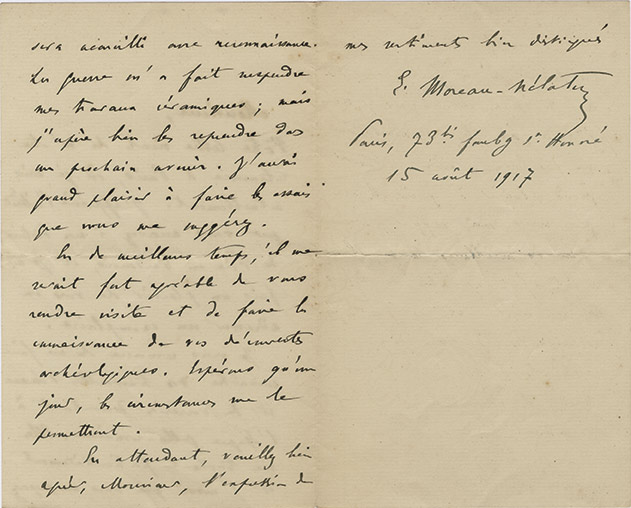 sera accueilli avec reconnaissance.
La guerre m'a fait suspendre
mes travaux céramiques ; mais
j'espère bien les reprendre dans
un prochain avenir. J'aurai
grand plaisir à faire les essais
que vous me suggérez.
En de meilleurs temps, il me
serait fort agréable de vous
rendre visite et de faire la
connaissance de vos découvertes
archéologiques. Espérons qu'un
jour, les circonstances me le
permettront.
En attendant, veuillez bien
agréer, Monsieur, l'expression de
mes sentiments bien distingués
E. Moreau-Nélaton
Paris, 73 bis faubg St Honoré
15 août 1917